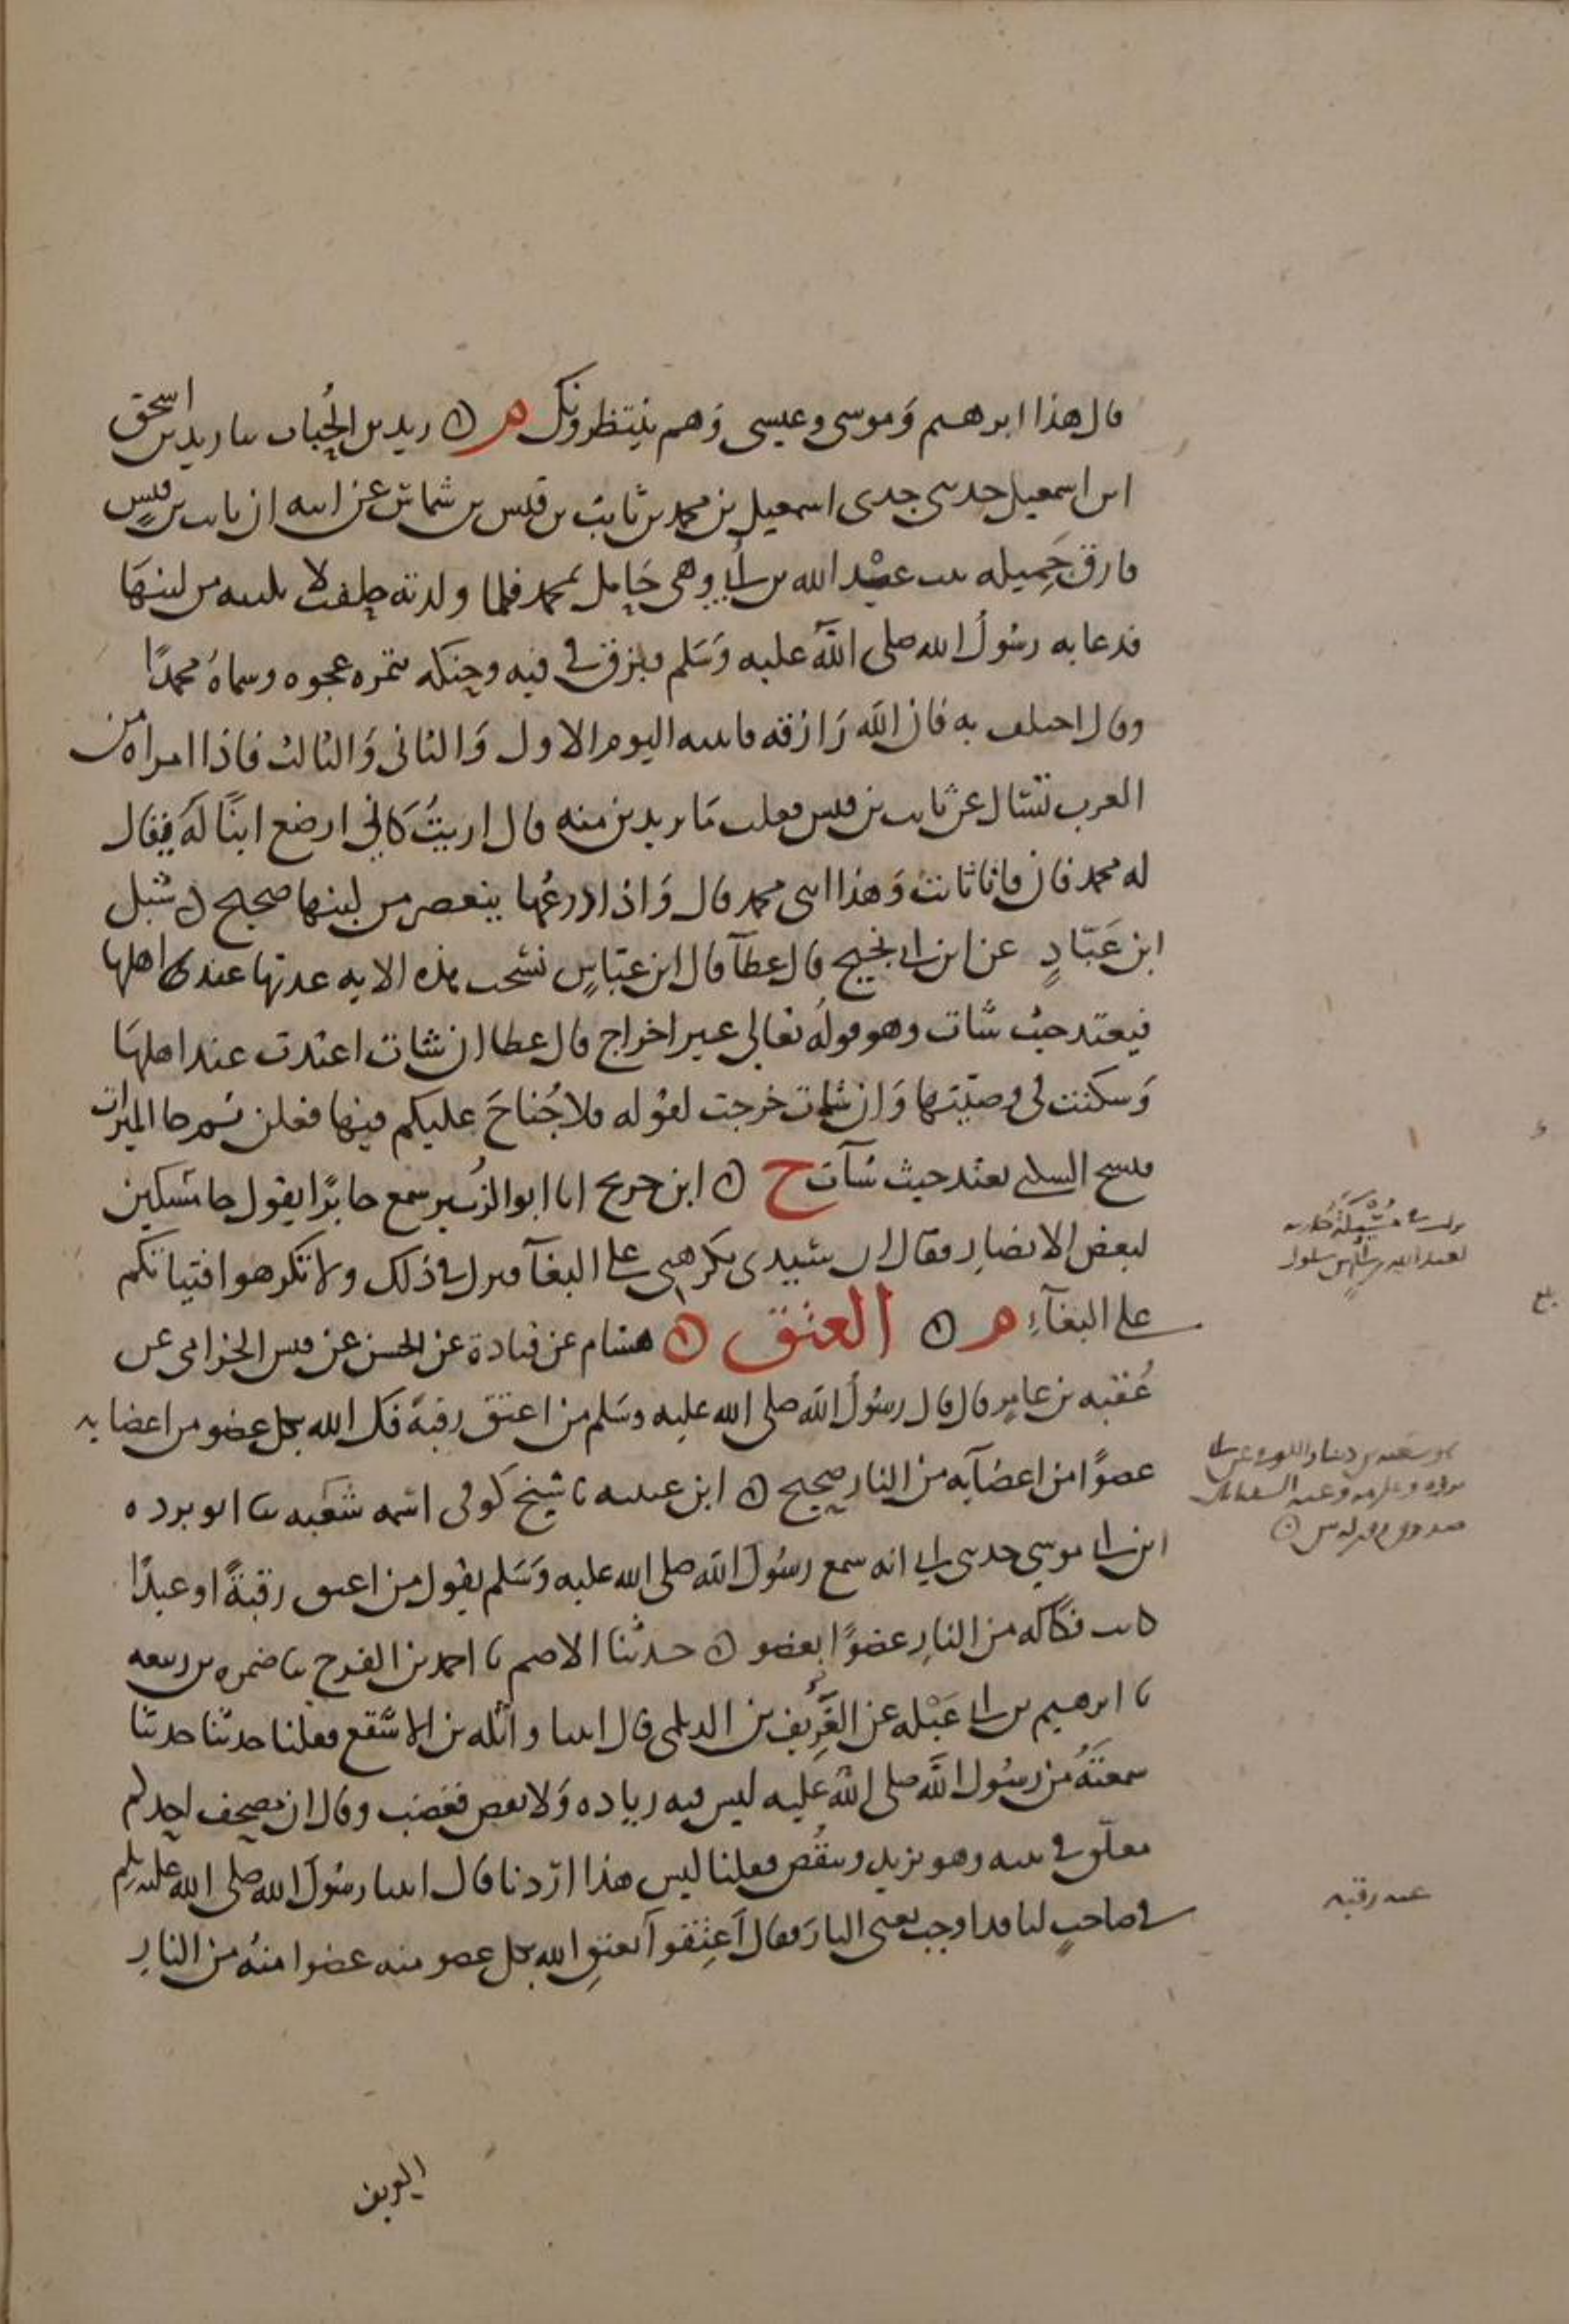 قال هذا ابرهيم وموسى وعيسى وهم ينتظرونك م ○ زيد بن الحُباب ثنا زيد بن اسحق
ابن اسمعيل حدثني جدي اسمعيل بن محمد بن ثابت بن قيس بن شماس عن ابيه ان ثابت بن قيس
فارق جَميله بنت عبد الله بن أُبي وهي حَامل بمحمد فلما ولدته حلفت لا تلبنه من لبنهَا
فدعا به رسُولُ الله صلى اللهُ عليه وَسَلم فبزق في فيه وحنكه بتمره عجوه وسماهُ محمدًا
وقال اختلف به فان اللهَ رَازقه فاتيته اليوم الاول وَالثاني وَالثالث فاذا امراه من
العرب تسال عن ثابت بن قيس فقلت مَا تريدين منه قال اريتُ كَاني ارضع ابنًا لَه فيقال
له محمد قال فانا ثابت وَهذا ابني محمد قال وَاذا درعُها ينعصر من لبنها صحيح ○ شبل
ابن عَبّادٍ عن ابن ابي نجيح قال عطآ قال ابن عبّاسٍ نسخت هذه الايه عدتها عند اهلها
فيعتد حيث شات وهو قولُه تعالى غير اخراج قال عطا ان شات اعتدت عند اهلهَا
وَسكنت في وصيّتها وَان شات خرجت لقوله فلا جُناحَ عليكم فيما فعلن ثم جا الميراث
فنسخ السكنى تعتد حيث شآت خ ○ ابن جريج انا ابو الزُبير سمع جابرًا يقول جا مسكين
لبعض الانصار فقال ان سيدي يكرهني على البغآ فنزل في ذلك ولا تكرهوا فتياتكم
على البغآءِ م ○ العتق ○ هشام عن قتادة عن الحسن عن قيس الجذامي عن
عُقبه بن عامر قال قال رسُولُ الله صلى الله عليه وسَلم من اعتق رقبةً فك الله بكل عضو من اعضايه
عضوًا من اعضآيه من النار صحيح ○ ابن عيينه نا شيخ كوفي اسمه شعبه نا ابو برده
ابن ابي موسي حدثني ابي انه سمع رسُولَ الله صلى الله عليه وَسَلم يقول من اعتق رقبةً او عبدًا
كانت فكاكه من النارِ عضوًا بعضو ○ حدثنا الاصم نا احمد بن الفرج نا ضمره بن ربيعه
نا ابرهيم بن ابي عَبْله عن الغَرِيف بن الديلمي قال اتينا واثله بن الاسقع فقلنا حدثنا حديثا
سمعتَهُ من رسُول الله صلى الله عليه ليس فيه زياده وَلا نقص فغضب وقال ان مصحف احدكم
معلّق في بيته وهو يزيد وينقُص فقلنا ليس هذا ارَدنا قال اتينا رسُولَ الله صلى الله عليه وسلم
في صاحبٍ لنا قد اوجب يعنى النارَ فقال اَعتِقوا يُعتقِ الله بكل عضو منه عضوا منهُ من النارِ
نزلت في مُسَيكَةَ جاريه
لعبد الله بن أُبَي بن سلول
بلغ
هو شعبه بن دينار الكوفي عن ابي
برده وعكرمه وعنه السفيانان
صدوق
عنه رقبه
الغريف